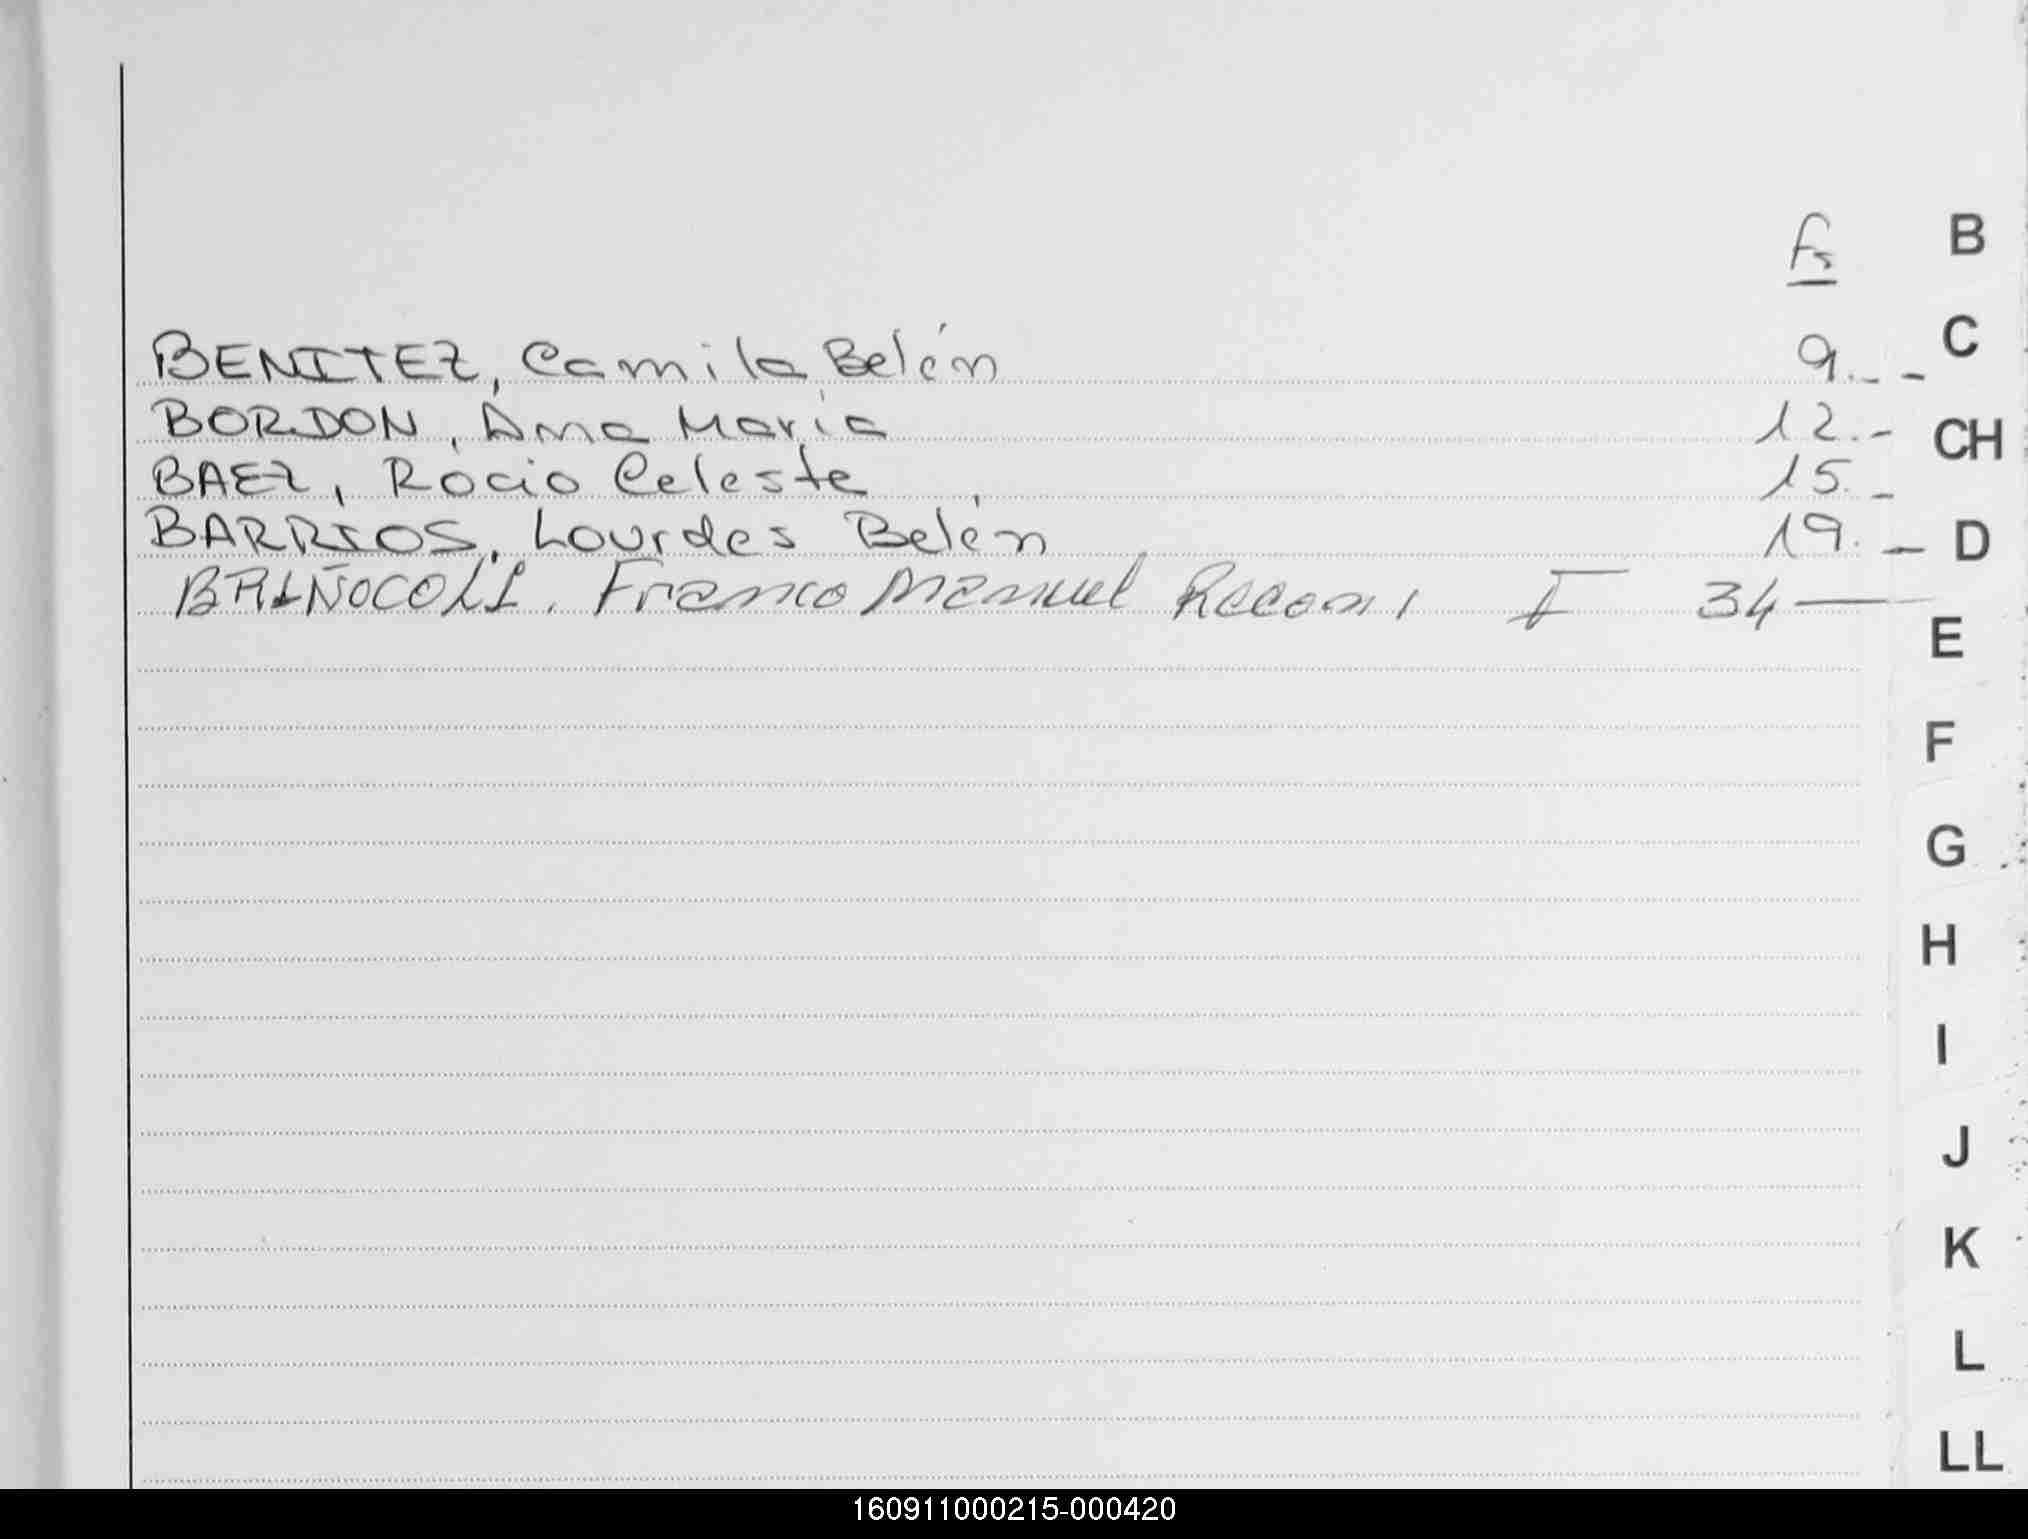 Fs
B
BENITEZ, Camila Belén 9.--
C
BORDON, Ana María 12.-
CH
BAEZ, Rocio Celeste 15.-
BARRIOS, Lourdes Belén 19.-
D
Franco Manuel Recon, I 34—
E
F
G
H
I
J
K
L
LL
160911000215-000420